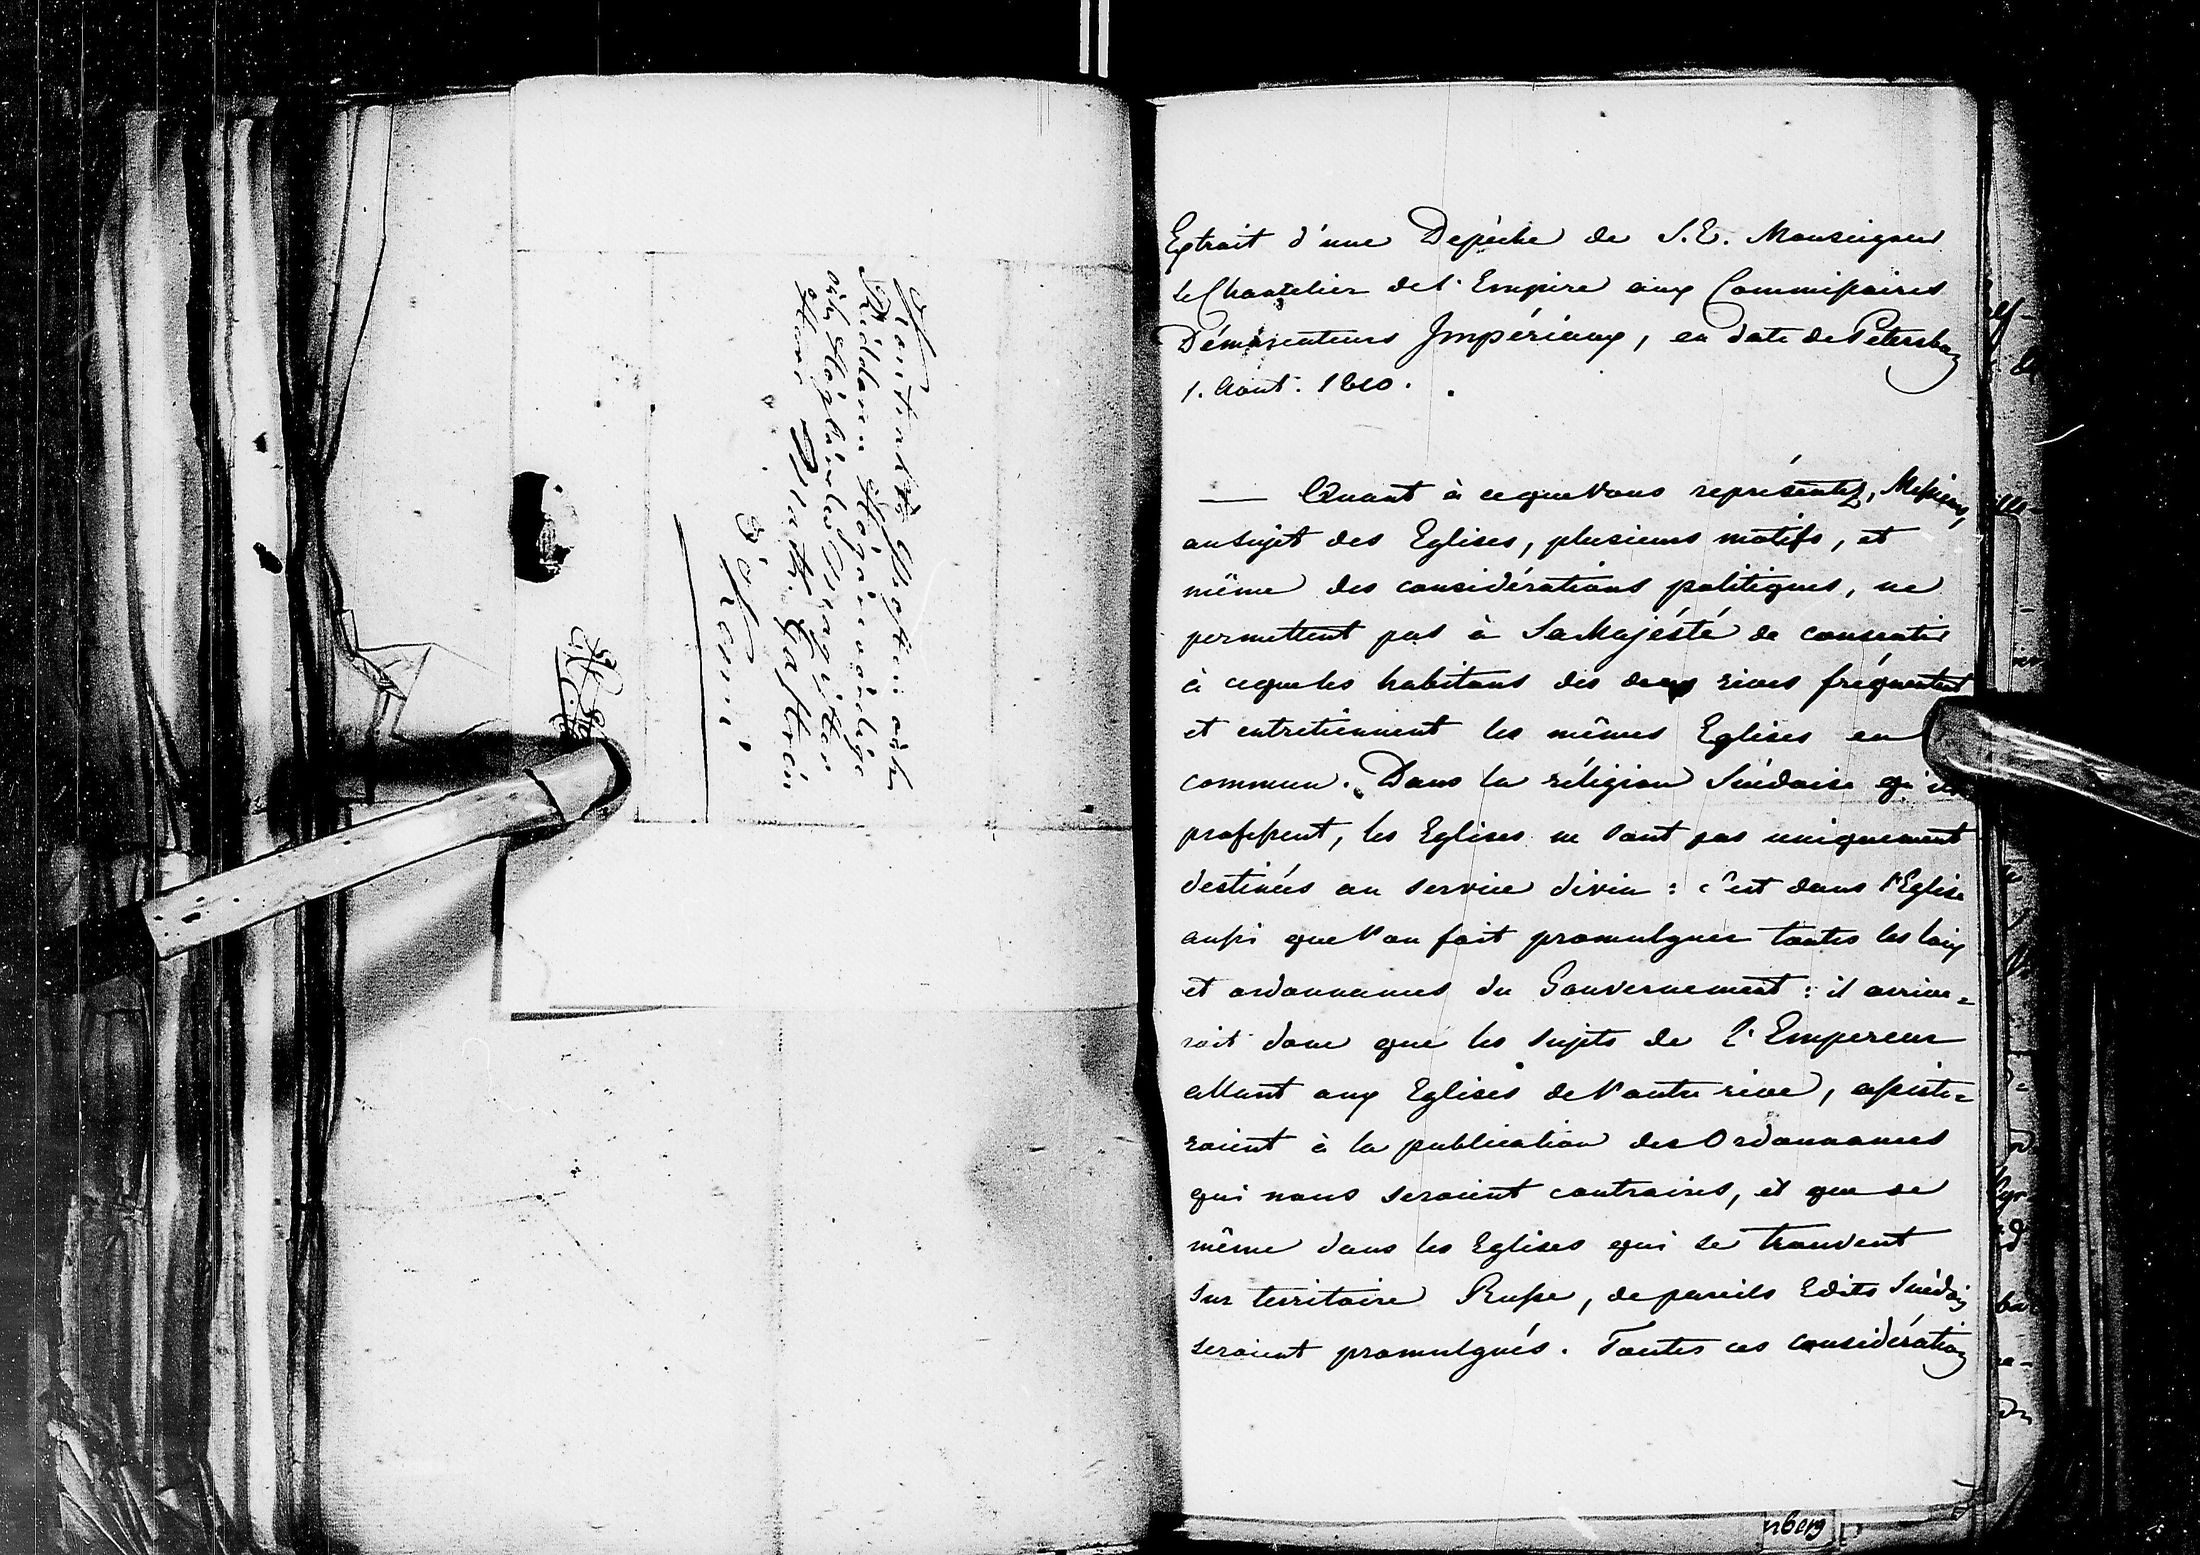 Contracts Prosten och
Riddaren Högärevördige
och Höglärde Magister
Herr Matth. Castrén
à
Kemi
Extrait d'une Depéche de S. E. Monseigneur
le Chancelier de l'Empire aux Commissaires
Démarcateurs Impériaux, en date de Petersbourg
1. Aout. 1810.
— Quant à ce que Vous représentez, Messieurs,
au sujet des Eglises, plusieurs motifs, et
même des considérations politiques, ne
permettent pas à Sa Majésté de consentir
à ce que les habitans des deux rives fréquentent
et entretiennent les mêmes Eglises en
commun. Dans la réligion Suédoise qu'ils
professent, les Eglises ne sont pas uniquement
destinées au service divin : c'est dans l'Eglise
aussi que l'on fait promulguer toutes les loix
et ordonnances du Gouvernement : il arrive=
roit donc que les sujets de l'Empereur
allant aux Eglises de l'autre rive, assiste=
roient à la publication des Ordonnances
qui nous seroient contraires, et que de
même dans les Eglises qui se trouvent
sur territoire Russe, de pareils Edits Suédois
seroient promulgués. Toutes ces considérations